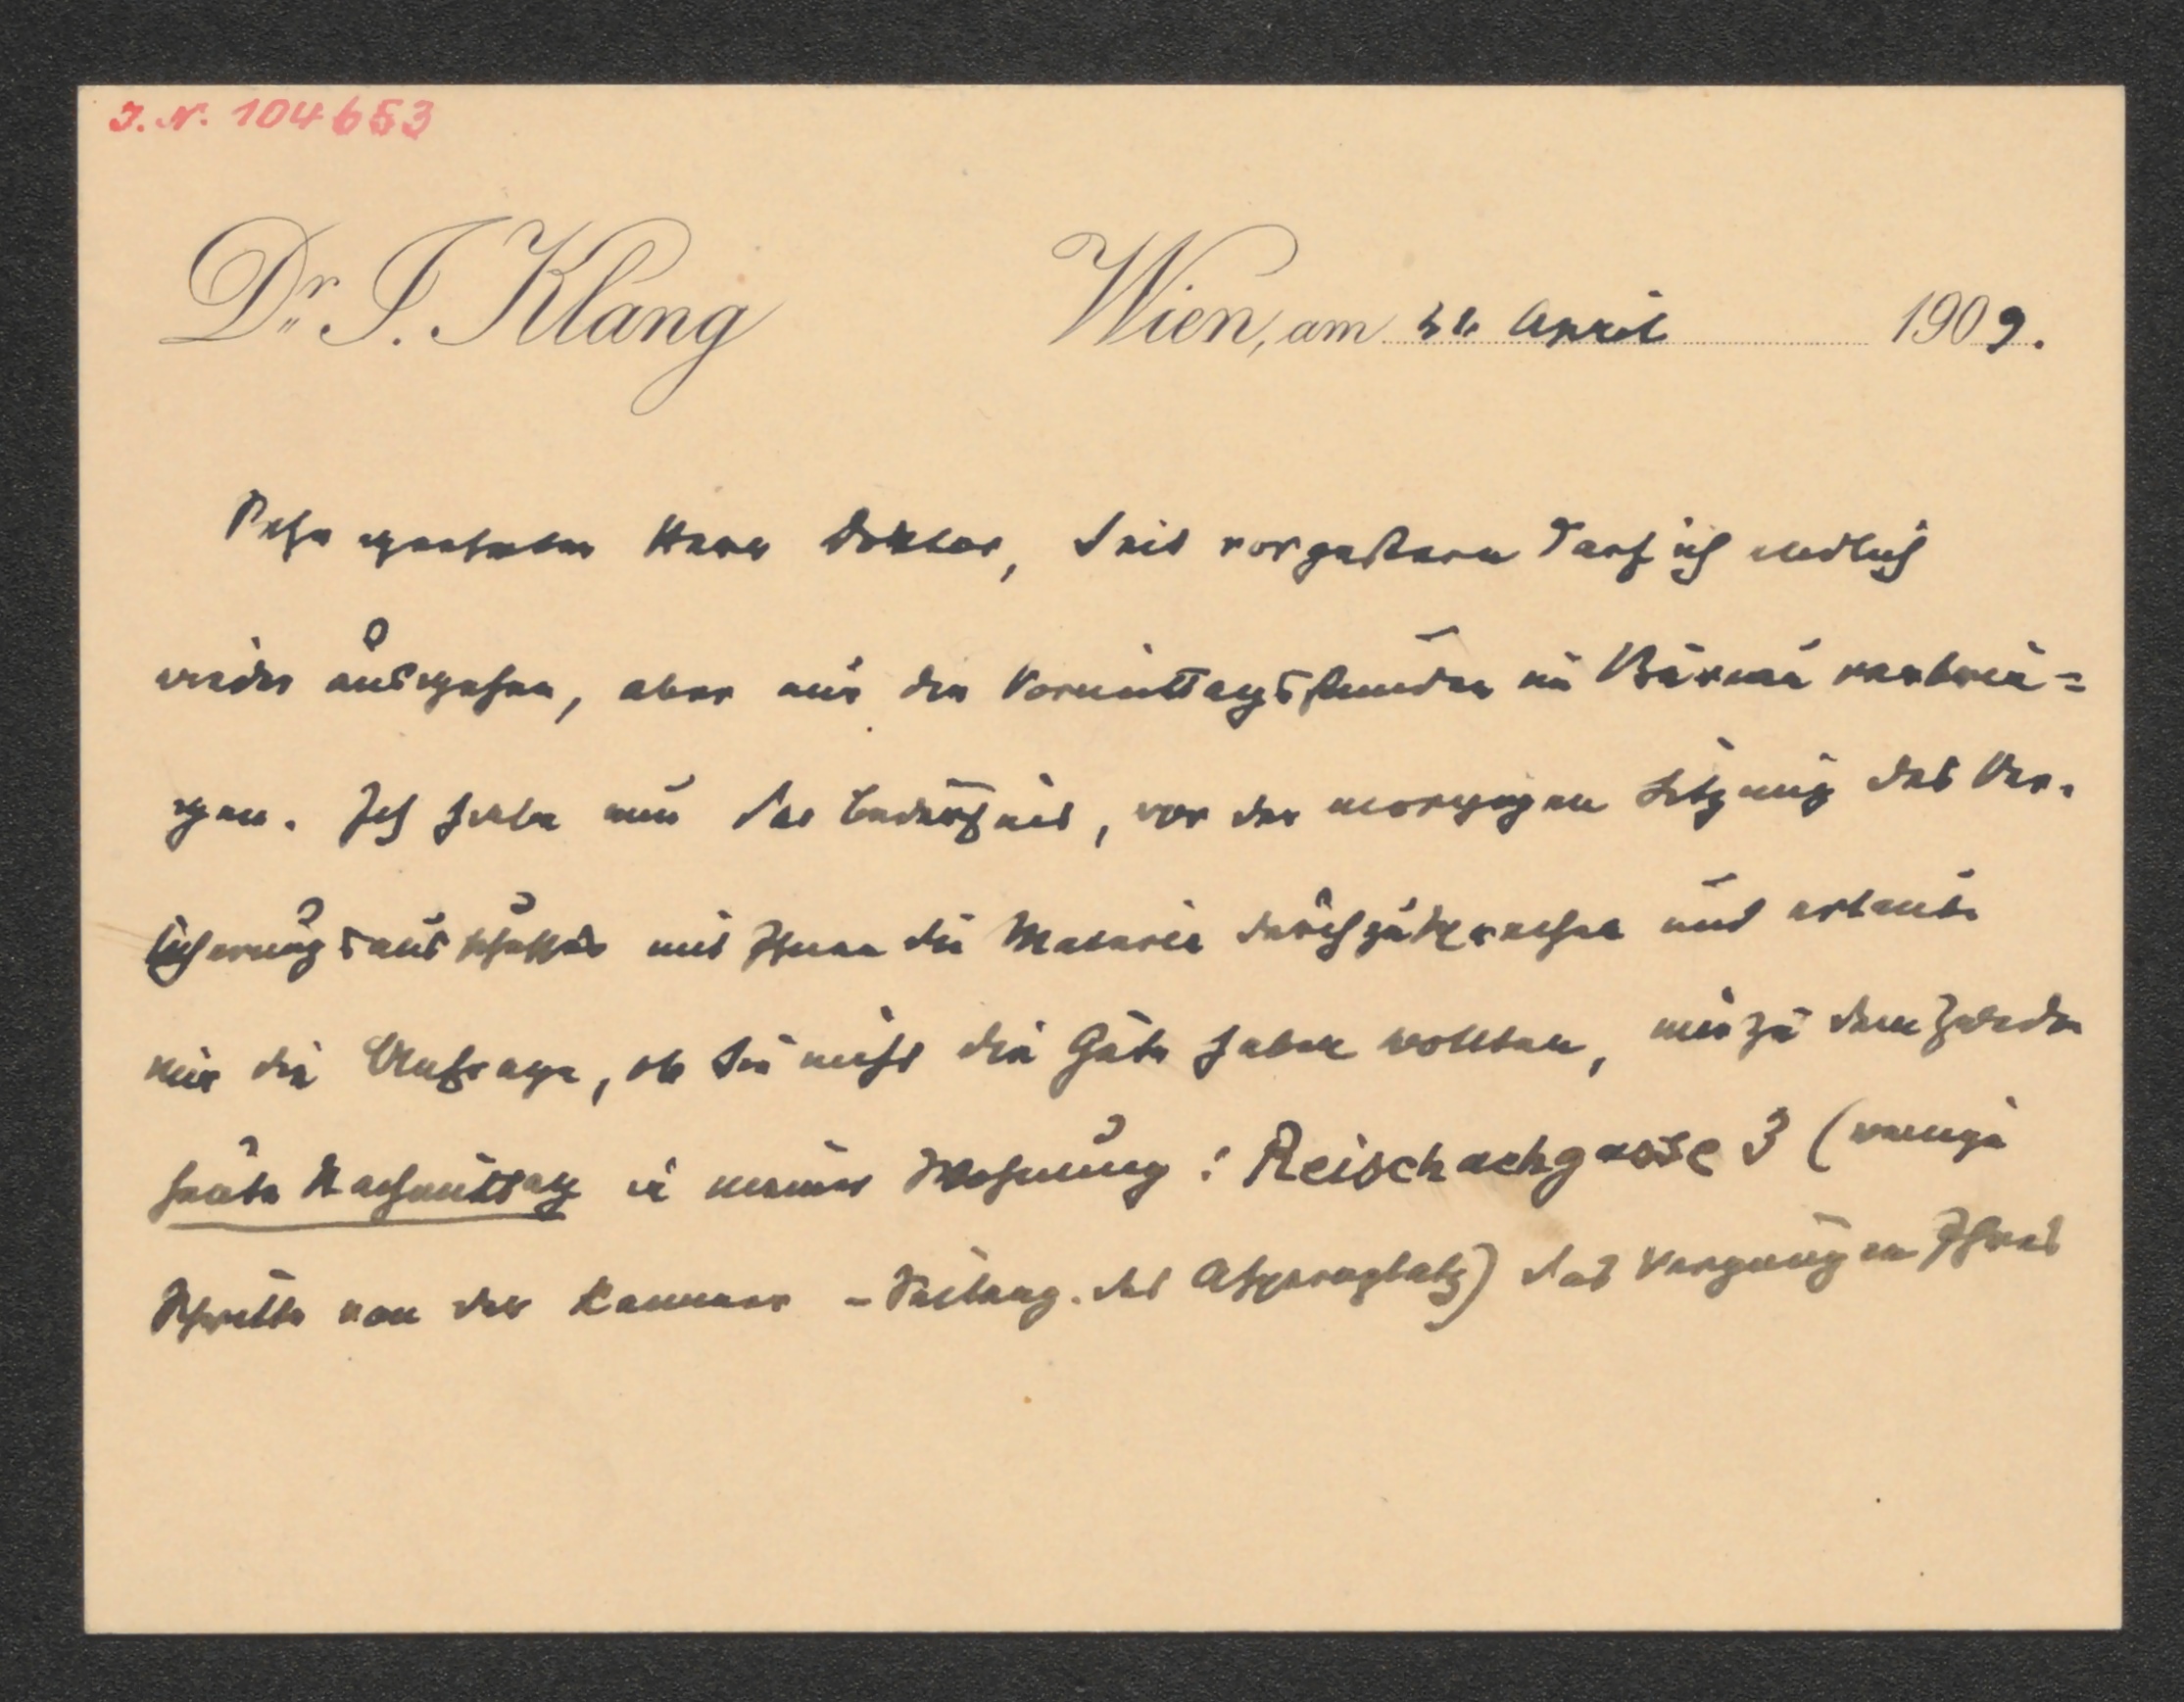 J. N. 104653
Dr. J. Klang Wien, am April 1909.
Sehr geehrter Herr Doktor, Seit vorgestern darf ich endlich
wieder ausgehen, aber nur die Vormittagsstunden im Bureau verbrin=
gen. Ich habe nun das Bedürfnis, vor der morgigen Sitzung des Ver-
sicherungsausschußes mit Ihnen die Materie durchzusprechen und erlaube
mir die Anfrage, ob Sie nicht die Güte haben wollten, mir zu dem Zwecke
heute Nachmittag in meiner Wohnung: Reischachgasse 3 (wenige
Schritte von der Kammer - des Aspernplatz) das Vergnügen Ihres